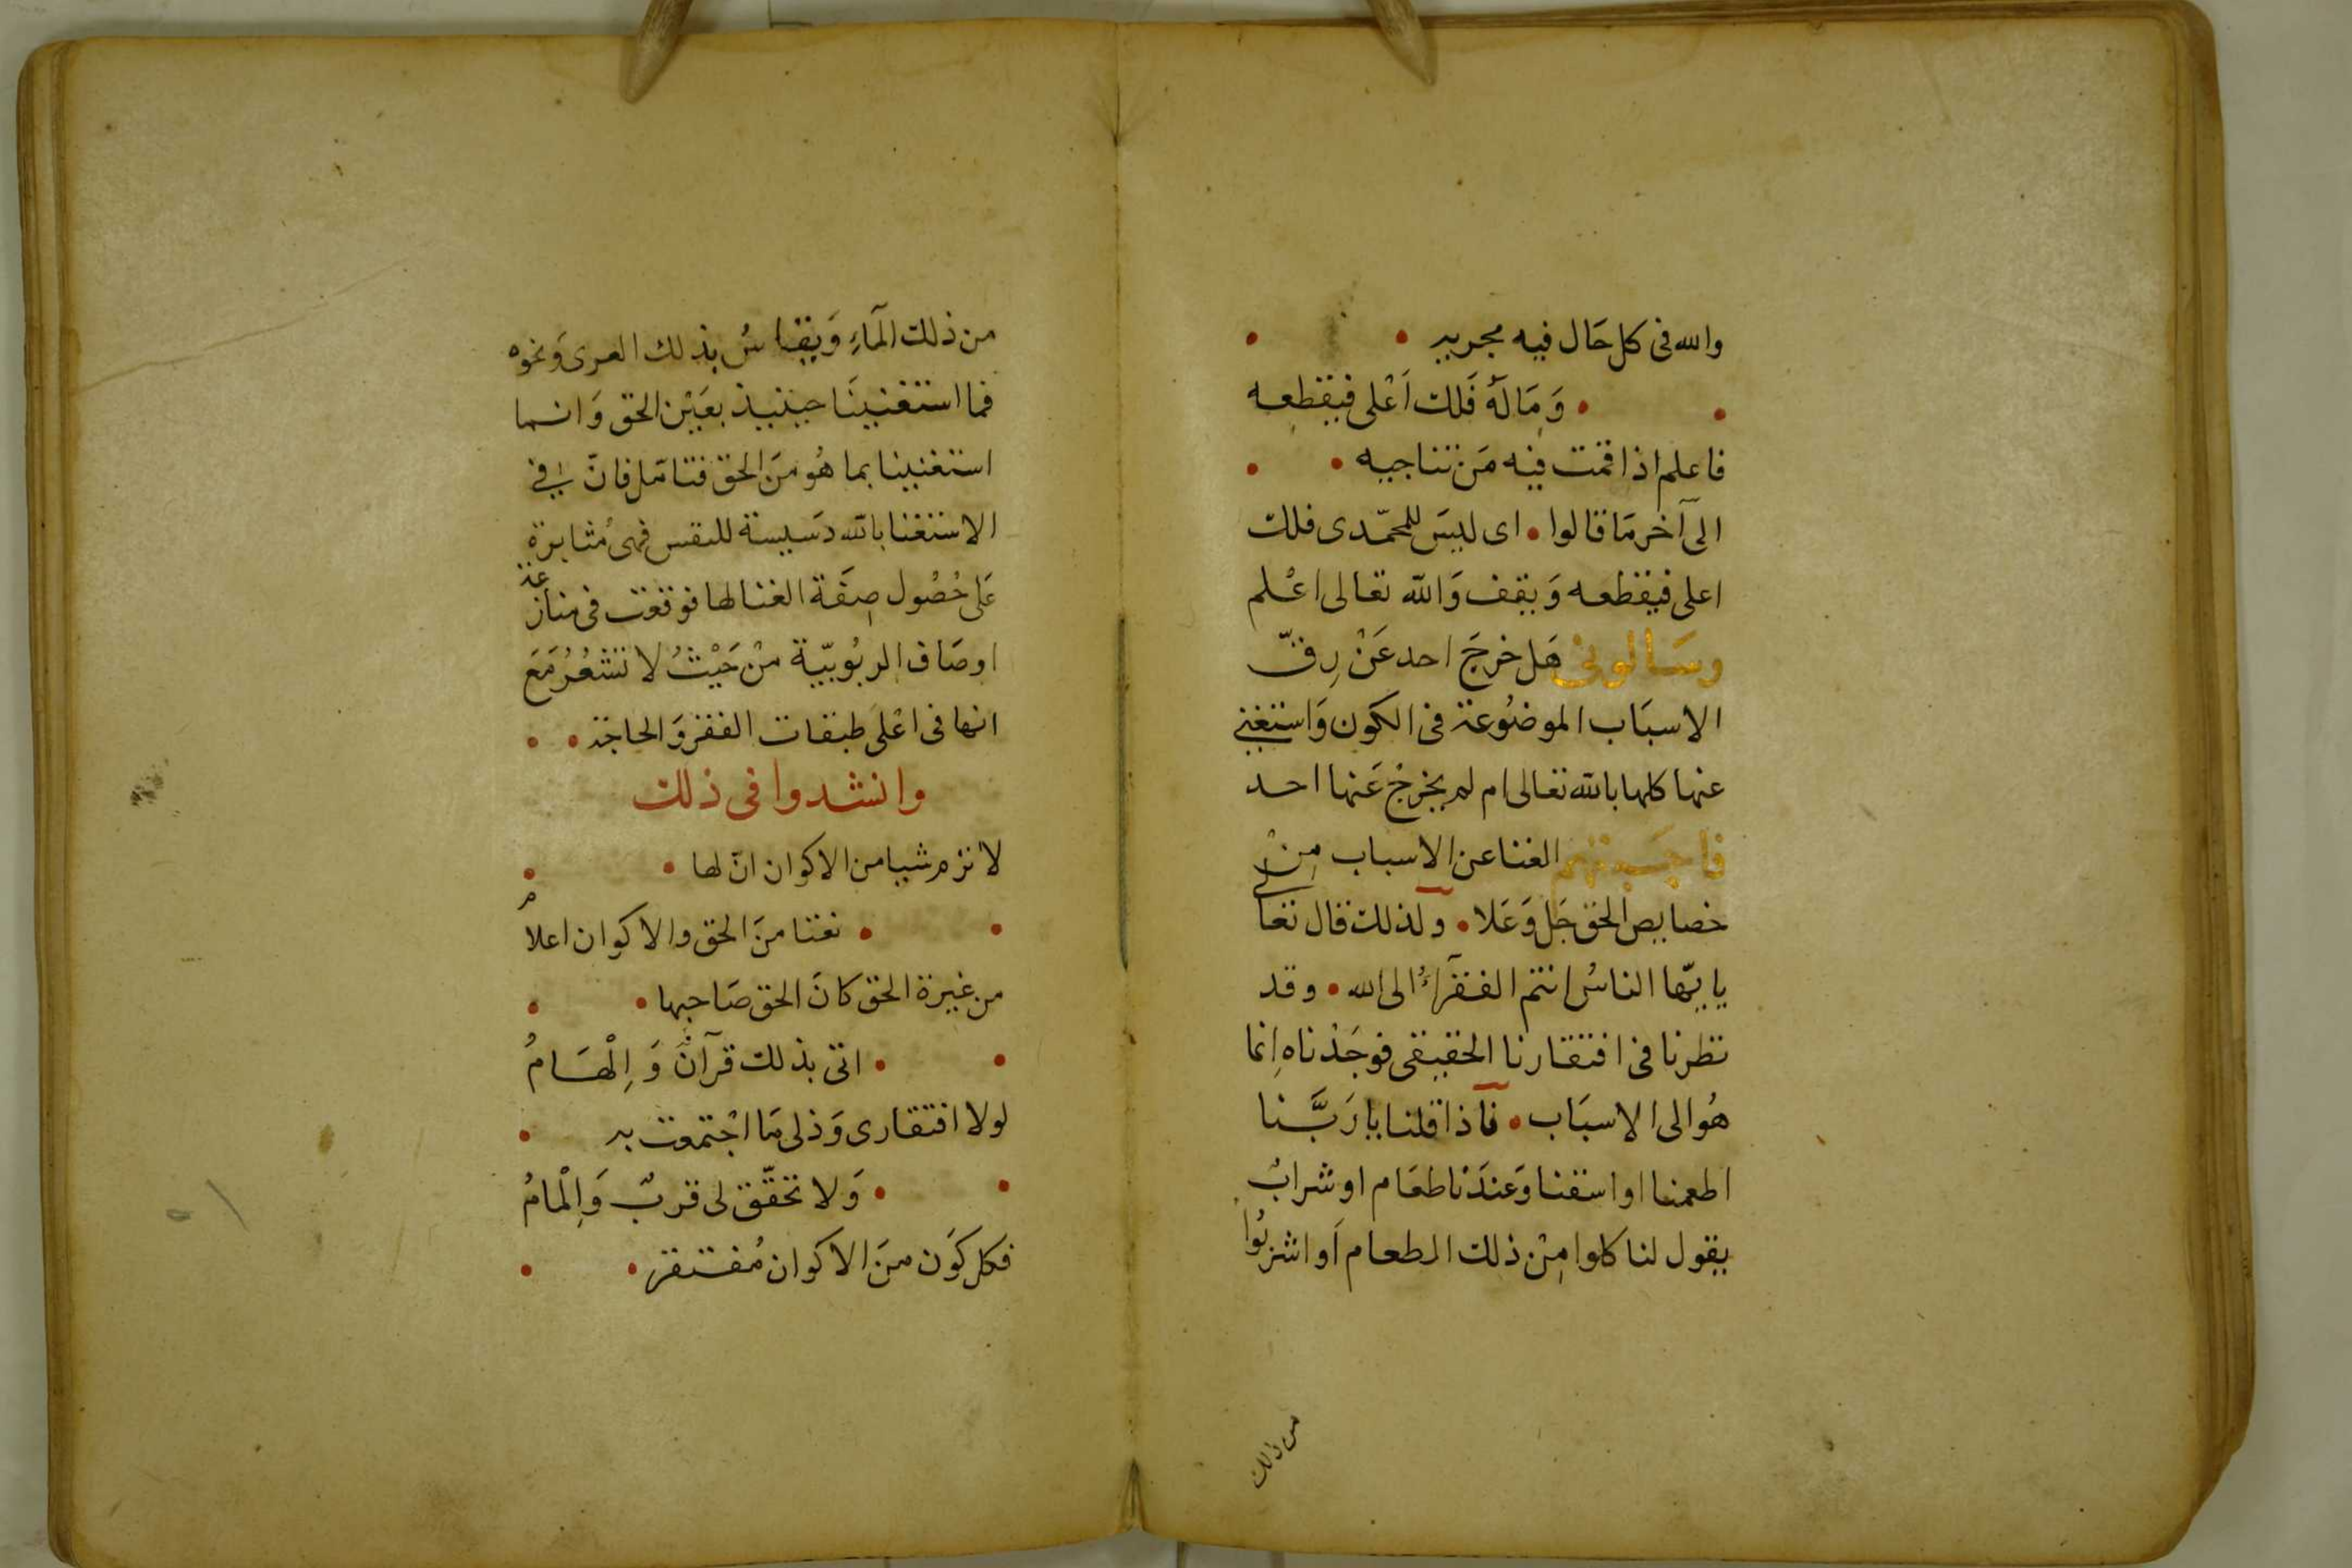 والله فى كل حَال فيه مجريه •
• وَمَا لَهُ فَلك اَعْلى فيقطعه
فاعلم اذا قمت فيه مَن تناجيه •
الى آخر مَا قالوا • اى ليسَ للمحمّدى فلك
اعلى فيقطعه وَيقف وَالله تعالى اعْلم
وسَالونى هَل خرجَ احد عَنْ رِقّ
الاسبَاب الموضُوعة فى الكون وَاستغنى
عنها كلها بالله تعالى ام لم يخرجْ عَنها احد
فاجبتهم الغنا عن الاسباب مِنْ
خصايص الحق جَل وَعَلا • ولذلك قال تعالى
يا ايّها الناسُ انتم الفقرآءُ الى الله • وقد
نظرنا فى افتقارنا الحقيقى فوجَدْناه اِنما
هُو الى الاسبَاب • فآذا قلنا يا رَبَّنا
اطعمنا او اسقنا وَعندَنا طعَام او شرابٌ
يقول لنا كلوا مِنْ ذلك الطعام اَو اشربُوا
من ذلك
من ذلك المآءِ وَيقاسُ بذلك العرى وَنحوه
فما استغنينَا حينيذ بعَيْن الحق وَانما
استغنينا بما هُو منَ الحق فتامّل فانّ فى
الاستغنا بالله دَسيسة للنفس فهىُ مثابرة
عَلى حُصُول صِفَة الغنا لها فوقعَت فى منازعة
اوصَاف الربُوبيّة منْ حَيْثُ لا تشعُرُ مَعَ
انها فى اعْلى طبقات الفقر وَالحاجة • •
وانشدوا فى ذلك
لا ترم شيا من الاكوان انّ لها •
• نعتا منَ الحق والاكوان اعلام
من غيرة الحق كانَ الحق صَاحبها •
• اتى بذلك قرآنٌ وَاِلْهَامُ
لولا افتقارى وَذلى مَا اجْتمعت به •
• وَلا تحقّق لى قربٌ وَاِلْمامُ
فكل كَون منَ الاكوان مُفتقر •